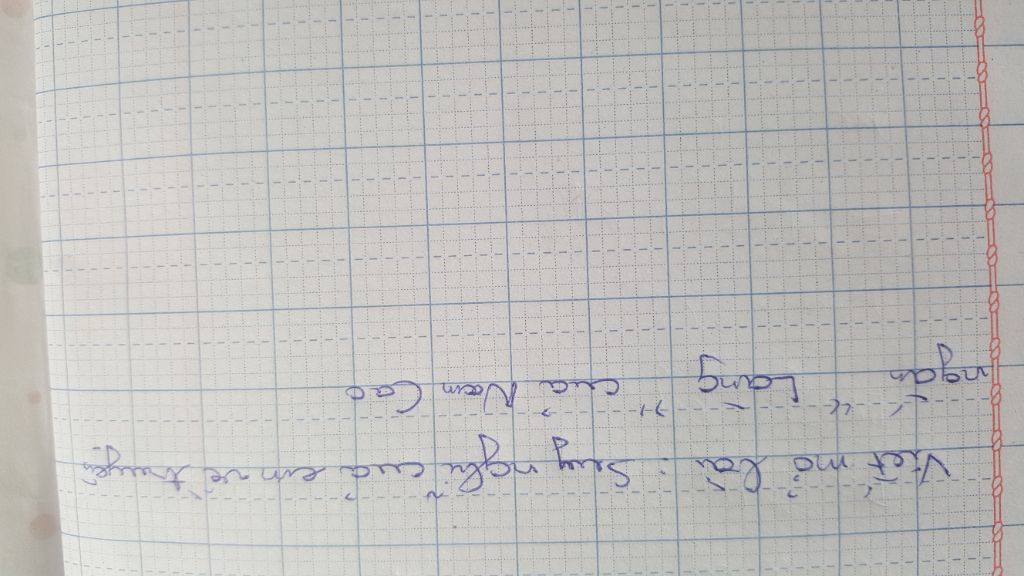 Viết mở bài : Suy nghĩ của em về truyện
ngắn " Làng " của Nam Cao